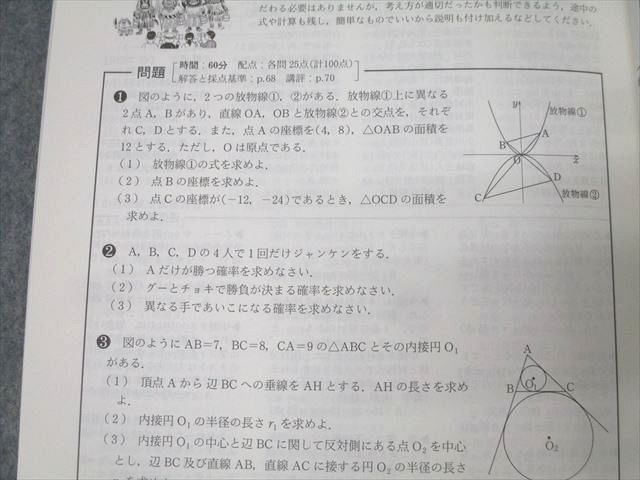 だわる必要はありませんが，考え方が適切だったかも判断できるよう，途中の
式や計算も残し，簡単なものでいいから説明も付け加えるなどしてください．
問題
時間：60分　配点：各問25点(計100点)
解答と採点基準：p.68　講評：p.70
❶　図のように，2つの放物線①，②がある．放物線①上に異なる
2点A，Bがあり，直線OA，OBと放物線②との交点を，それぞ
れC，Dとする．また，点Aの座標を(4，8)，△OABの面積を
12とする．ただし，Oは原点である．
(1)　放物線①の式を求めよ．
(2)　点Bの座標を求めよ．
(3)　点Cの座標が(−12，−24)であるとき，△OCDの面積を
求めよ．
y
放物線①
A
B
O
x
D
放物線②
C
❷　A，B，C，Dの4人で1回だけジャンケンをする．
(1)　Aだけが勝つ確率を求めなさい．
(2)　グーとチョキで勝負が決まる確率を求めなさい．
(3)　異なる手であいこになる確率を求めなさい．
❸　図のようにAB=7，BC=8，CA=9の△ABCとその内接円O₁
がある．
(1)　頂点Aから辺BCへの垂線をAHとする．AHの長さを求め
よ．
(2)　内接円O₁の半径の長さr₁を求めよ．
(3)　内接円O₁の中心と辺BCに関して反対側にある点O₂を中心
とし，辺BC及び直線AB，直線ACに接する円O₂の半径の長さ
A
B
O₁
C
O₂